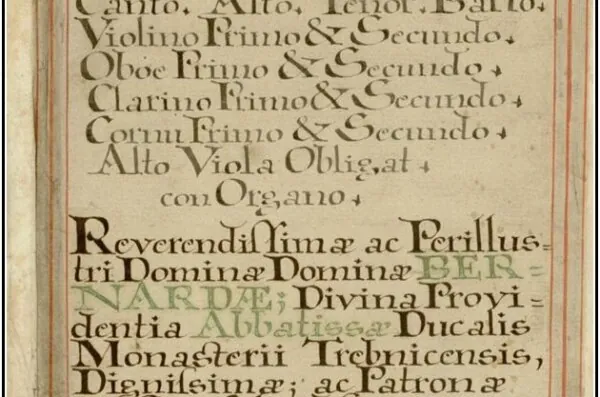 Canto, Alto, Tenor, Basso,
Violino Primo & Secundo,
Oboe Primo & Secundo,
Clarino Primo & Secundo,
Cornu Primo & Secundo,
Alto Viola Oblig,at,
con Organo,
Reverendiſſimæ ac Perilluſ=
tri Dominæ Dominæ BER=
NARDÆ; Divina Provi=
dentia Abbatissæ Ducalis
Monasterii Trebnicensis,
Digniſsimæ; ac Patronæ